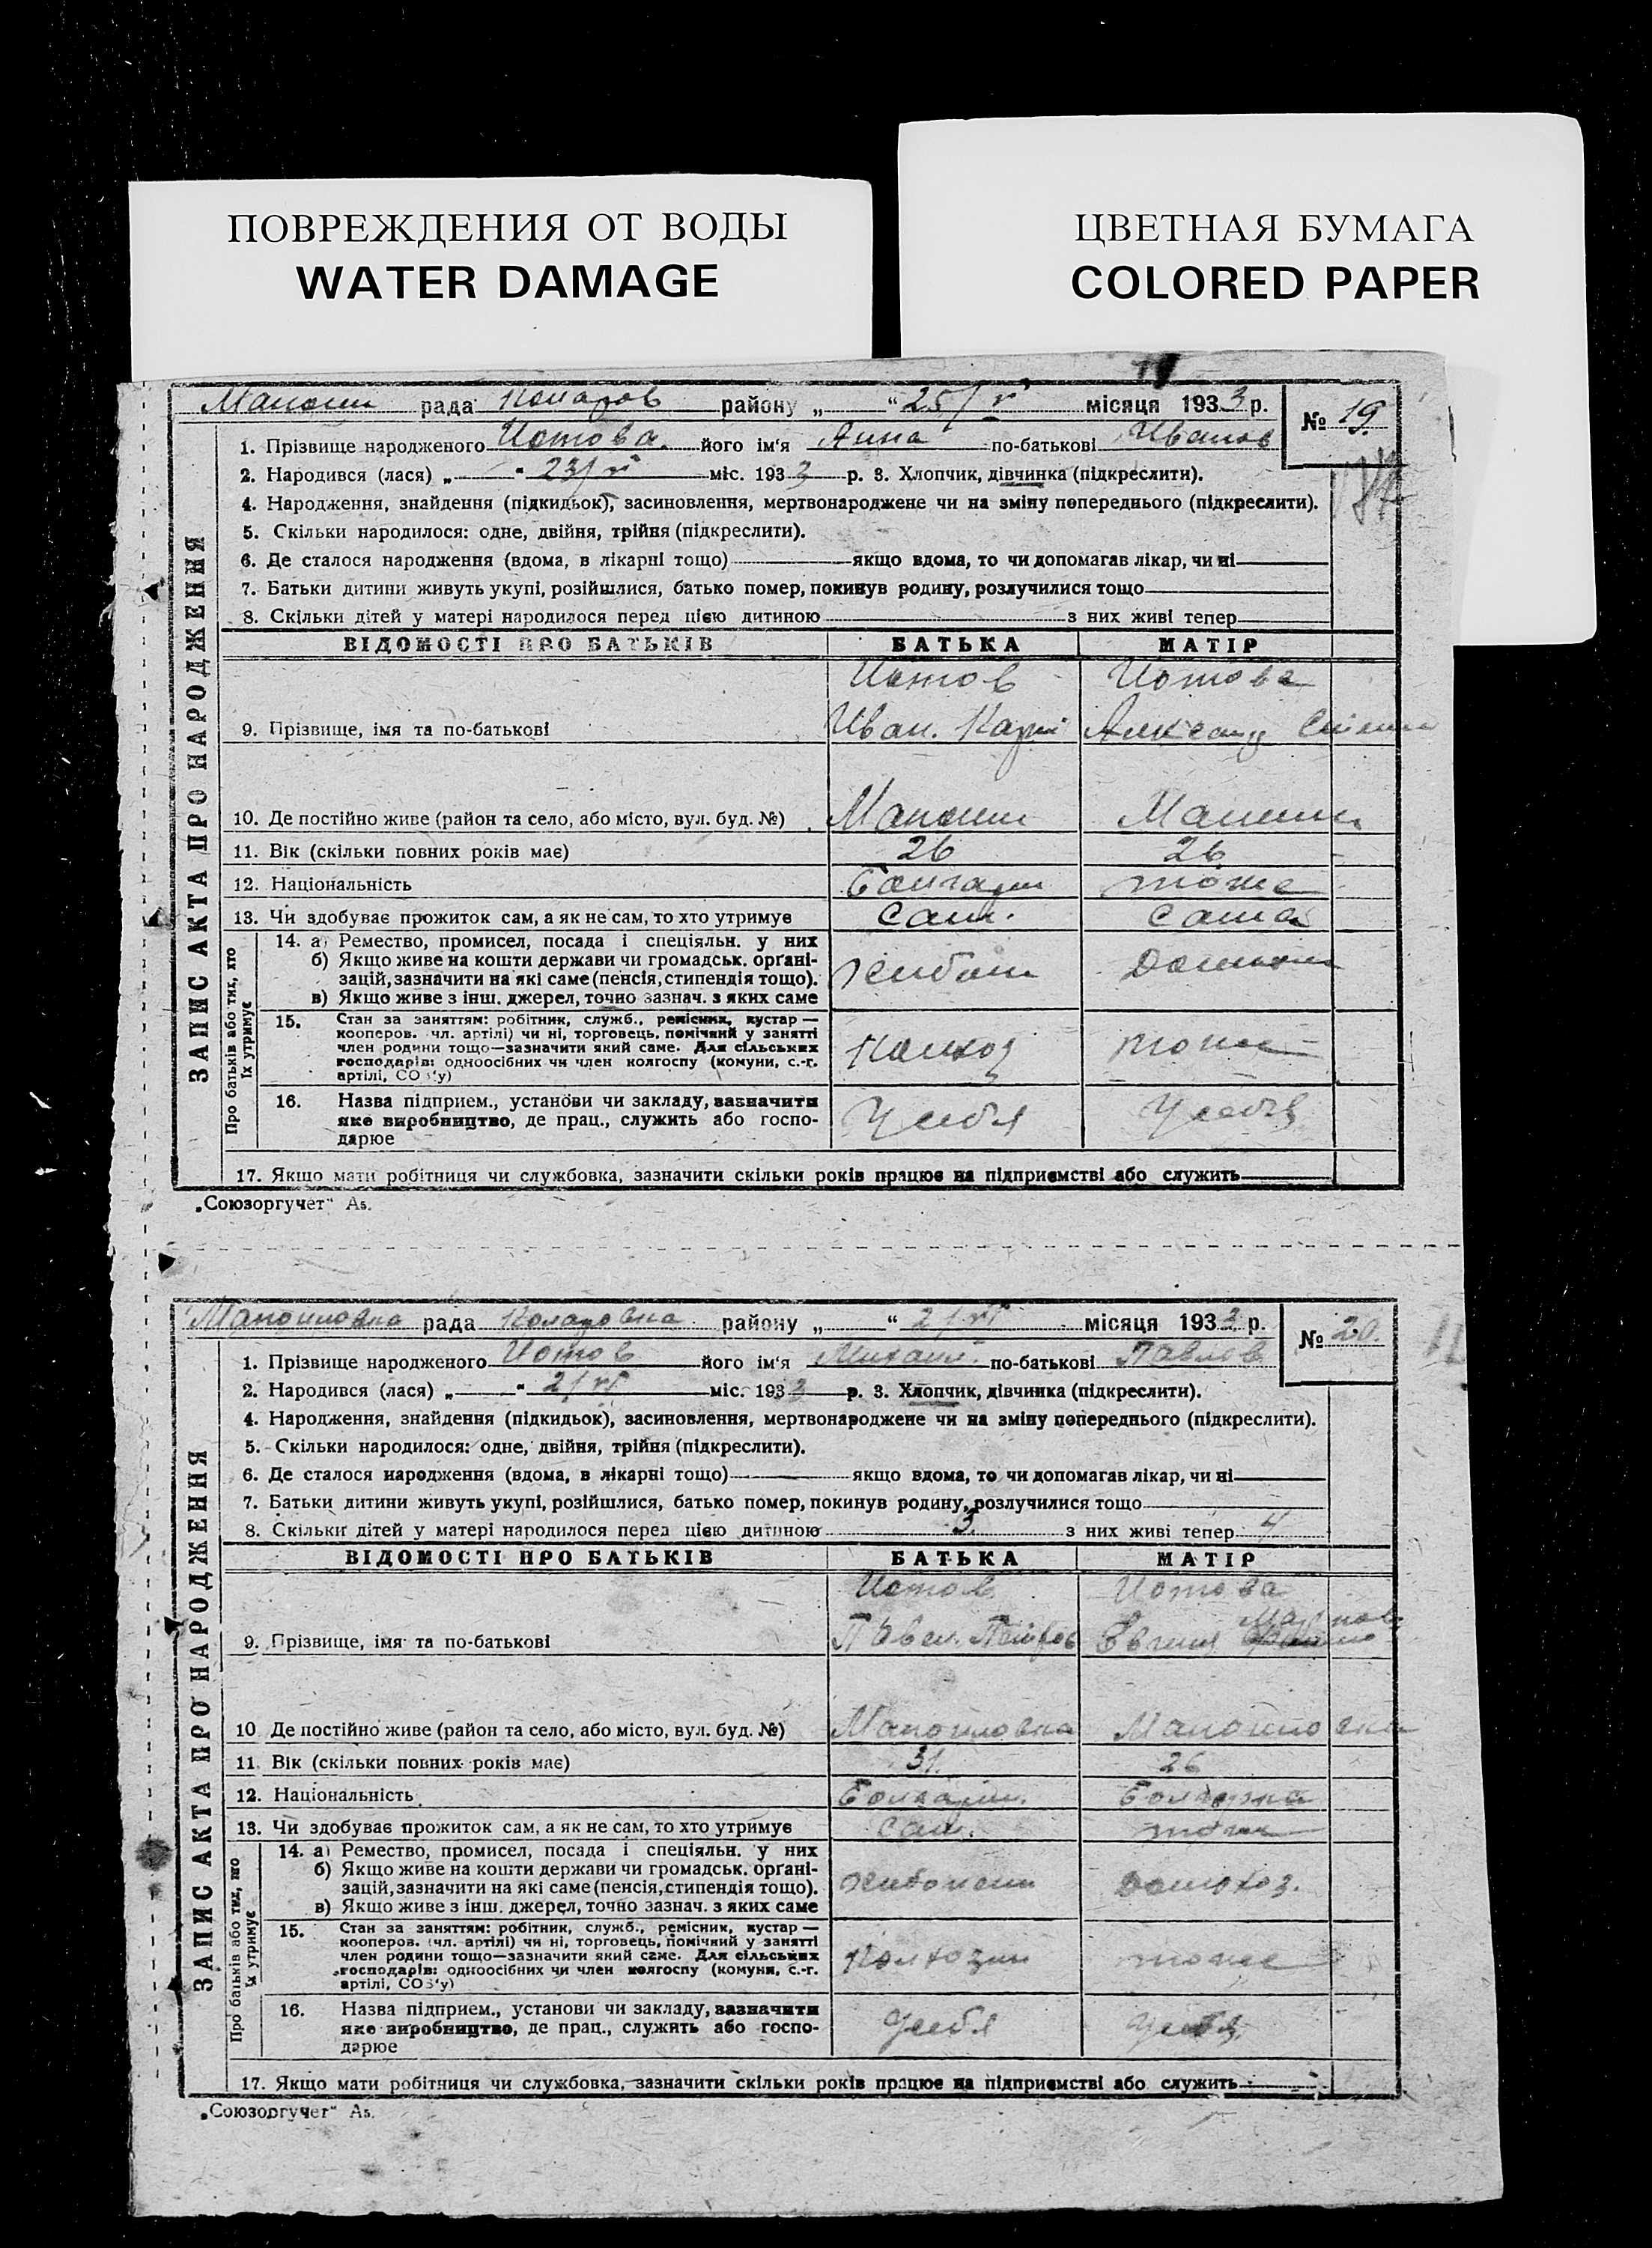 ПОВРЕЖДЕНИЯ ОТ ВОДЫ
WATER DAMAGE
ЦВЕТНАЯ БУМАГА
COLORED PAPER
рада району „ “ 25/V місяця 1933 р.
№ 19.
ЗАПИС АКТА ПРО НАРОДЖЕННЯ
1. Прізвище народженого Иотова. його ім'я Анна по-батькові Иванов
2. Народився (лася) „ “ 23/ міс. 1933 р. 3. Хлопчик, дівчинка (підкреслити).
4. Народження, знайдення (підкидьок), засиновлення, мертвонароджене чи на зміну попереднього (підкреслити).
5. Скільки народилося: одне, двійня, трійня (підкреслити).
6. Де сталося народження (вдома, в лікарні тощо) якщо вдома, то чи допомагав лікар, чи ні
7. Батьки дитини живуть укупі, розійшлися, батько помер, покинув родину, розлучилися тощо
8. Скільки дітей у матері народилося перед цією дитиною з них живі тепер
ВІДОМОСТІ ПРО БАТЬКІВ БАТЬКА МАТІР
Иотов Иотова
9. Прізвище, імя та по-батькові Иван.
10. Де постійно живе (район та село, або місто, вул. буд. №)
11. Вік (скільки повних років має) 26 26
12. Національність тоже
13. Чи здобуває прожиток сам, а як не сам, то хто утримує Сам. Сама
Про батьків або тих, хто їх утримує
14. а) Ремество, промисел, посада і спеціяльн. у них
б) Якщо живе на кошти держави чи громадськ. органі-
зацій, зазначити на які саме (пенсія, стипендія тощо).
в) Якщо живе з інш. джерел, точно зазнач. з яких саме
15. Стан за заняттям: робітник, служб., ремісник, кустар —
кооперов. чл. артілі) чи ні, торговець, помічний у занятті
член родини тощо—зазначити який саме. Для сільських
господарів: одноосібних чи член колгоспу (комуни, с.-г.
артілі, СОЗ'у)
Колхоз тоже
16. Назва підприєм., установи чи закладу, зазначити
яке виробництво, де прац., служить або госпо-
дарює
У себя У себя
17. Якщо мати робітниця чи службовка, зазначити скільки років працює на підприємстві або служить
„Союзоргучет“ А5.
рада району „ “ 2/VI місяця 1933 р.
№ 20.
ЗАПИС АКТА ПРО НАРОДЖЕННЯ
1. Прізвище народженого Иотов його ім'я Михаил по-батькові Павлов
2. Народився (лася) „ “ 2/VI міс. 1933 р. 3. Хлопчик, дівчинка (підкреслити).
4. Народження, знайдення (підкидьок), засиновлення, мертвонароджене чи на зміну попереднього (підкреслити).
5. Скільки народилося: одне, двійня, трійня (підкреслити).
6. Де сталося народження (вдома, в лікарні тощо) якщо вдома, то чи допомагав лікар, чи ні
7. Батьки дитини живуть укупі, розійшлися, батько помер, покинув родину, розлучилися тощо
8. Скільки дітей у матері народилося перед цією дитиною 3. з них живі тепер 4
ВІДОМОСТІ ПРО БАТЬКІВ БАТЬКА МАТІР
Иотов Иотова
9. Прізвище, імя та по-батькові Павел. Петров
10 Де постійно живе (район та село, або місто, вул. буд. №)
11. Вік (скільки повних років має) 31. 26
12. Національність Болгарин. Болгарка
13. Чи здобуває прожиток сам, а як не сам, то хто утримує Сам. тоже
Про батьків або тих, хто їх утримує
14. а) Ремество, промисел, посада і спеціяльн. у них
б) Якщо живе на кошти держави чи громадськ. органі-
зацій, зазначити на які саме (пенсія, стипендія тощо).
в) Якщо живе з інш. джерел, точно зазнач. з яких саме
Домохоз.
15. Стан за заняттям: робітник, служб., ремісник, кустар —
кооперов. (чл. артілі) чи ні, торговець, помічний у занятті
член родини тощо—зазначити який саме. Для сільських
господарів: одноосібних чи член колгоспу (комуни, с.-г.
артілі, СОЗ'у)
тоже
16. Назва підприєм., установи чи закладу, зазначити
яке виробництво, де прац., служить або госпо-
дарює
У себя У себя
17. Якщо мати робітниця чи службовка, зазначити скільки років працює на підприємстві або служить
„Союзоргучет“ А5.